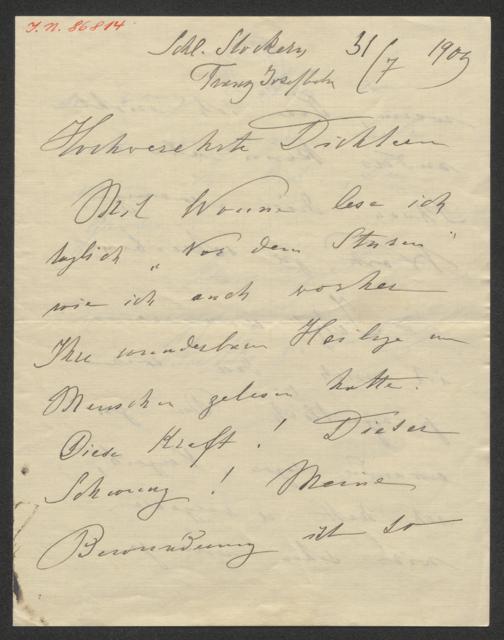 I. N. 86814
Schl. Stockern, 31/7 1909
Franz Josefbahn
Hochverehrte Dichterin
Mit Wonne lese ich
täglich „Vor dem Sturm"
wie ich auch vorher
Ihre wunderbaren Heilige und
Menschen gelesen hatte.
Diese Kraft! Dieser
Schwung! Meine
Bewunderung ist so